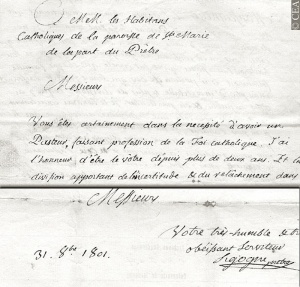 A MM. les Habitans
Catholiques de la paroisse de Ste Marie
de la part du Prêtre
Messieurs
Vous êtes certainement dans la nécessité d'avoir un
Pasteur, faisant profession de la Foi catholique. J'ai
l'honneur d'être le vôtre depuis plus de deux ans. Et la
division apportant de l'incertitude & du relâchement dans
Messieurs
Votre très humble &
obéissant Serviteur
31. 8bre 1801. Sigogne ptre
© CEA